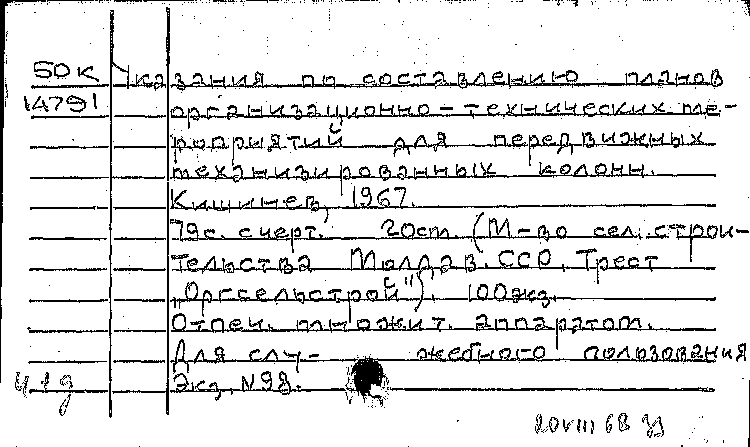 50К Указания по составлению планов
14791 организационно-технических ме-
роприятий для передвижных
механизированных колонн.
Кишинев, 1967.
79с. с черт. 20см. (М-во сел. строи-
тельства Молдав. ССО, Трест
„Оргсельстрой"). 100экз.
Отпеч. множит. аппаратом.
Для слу- жебного пользования
Экз. N98.
20 VIII 68